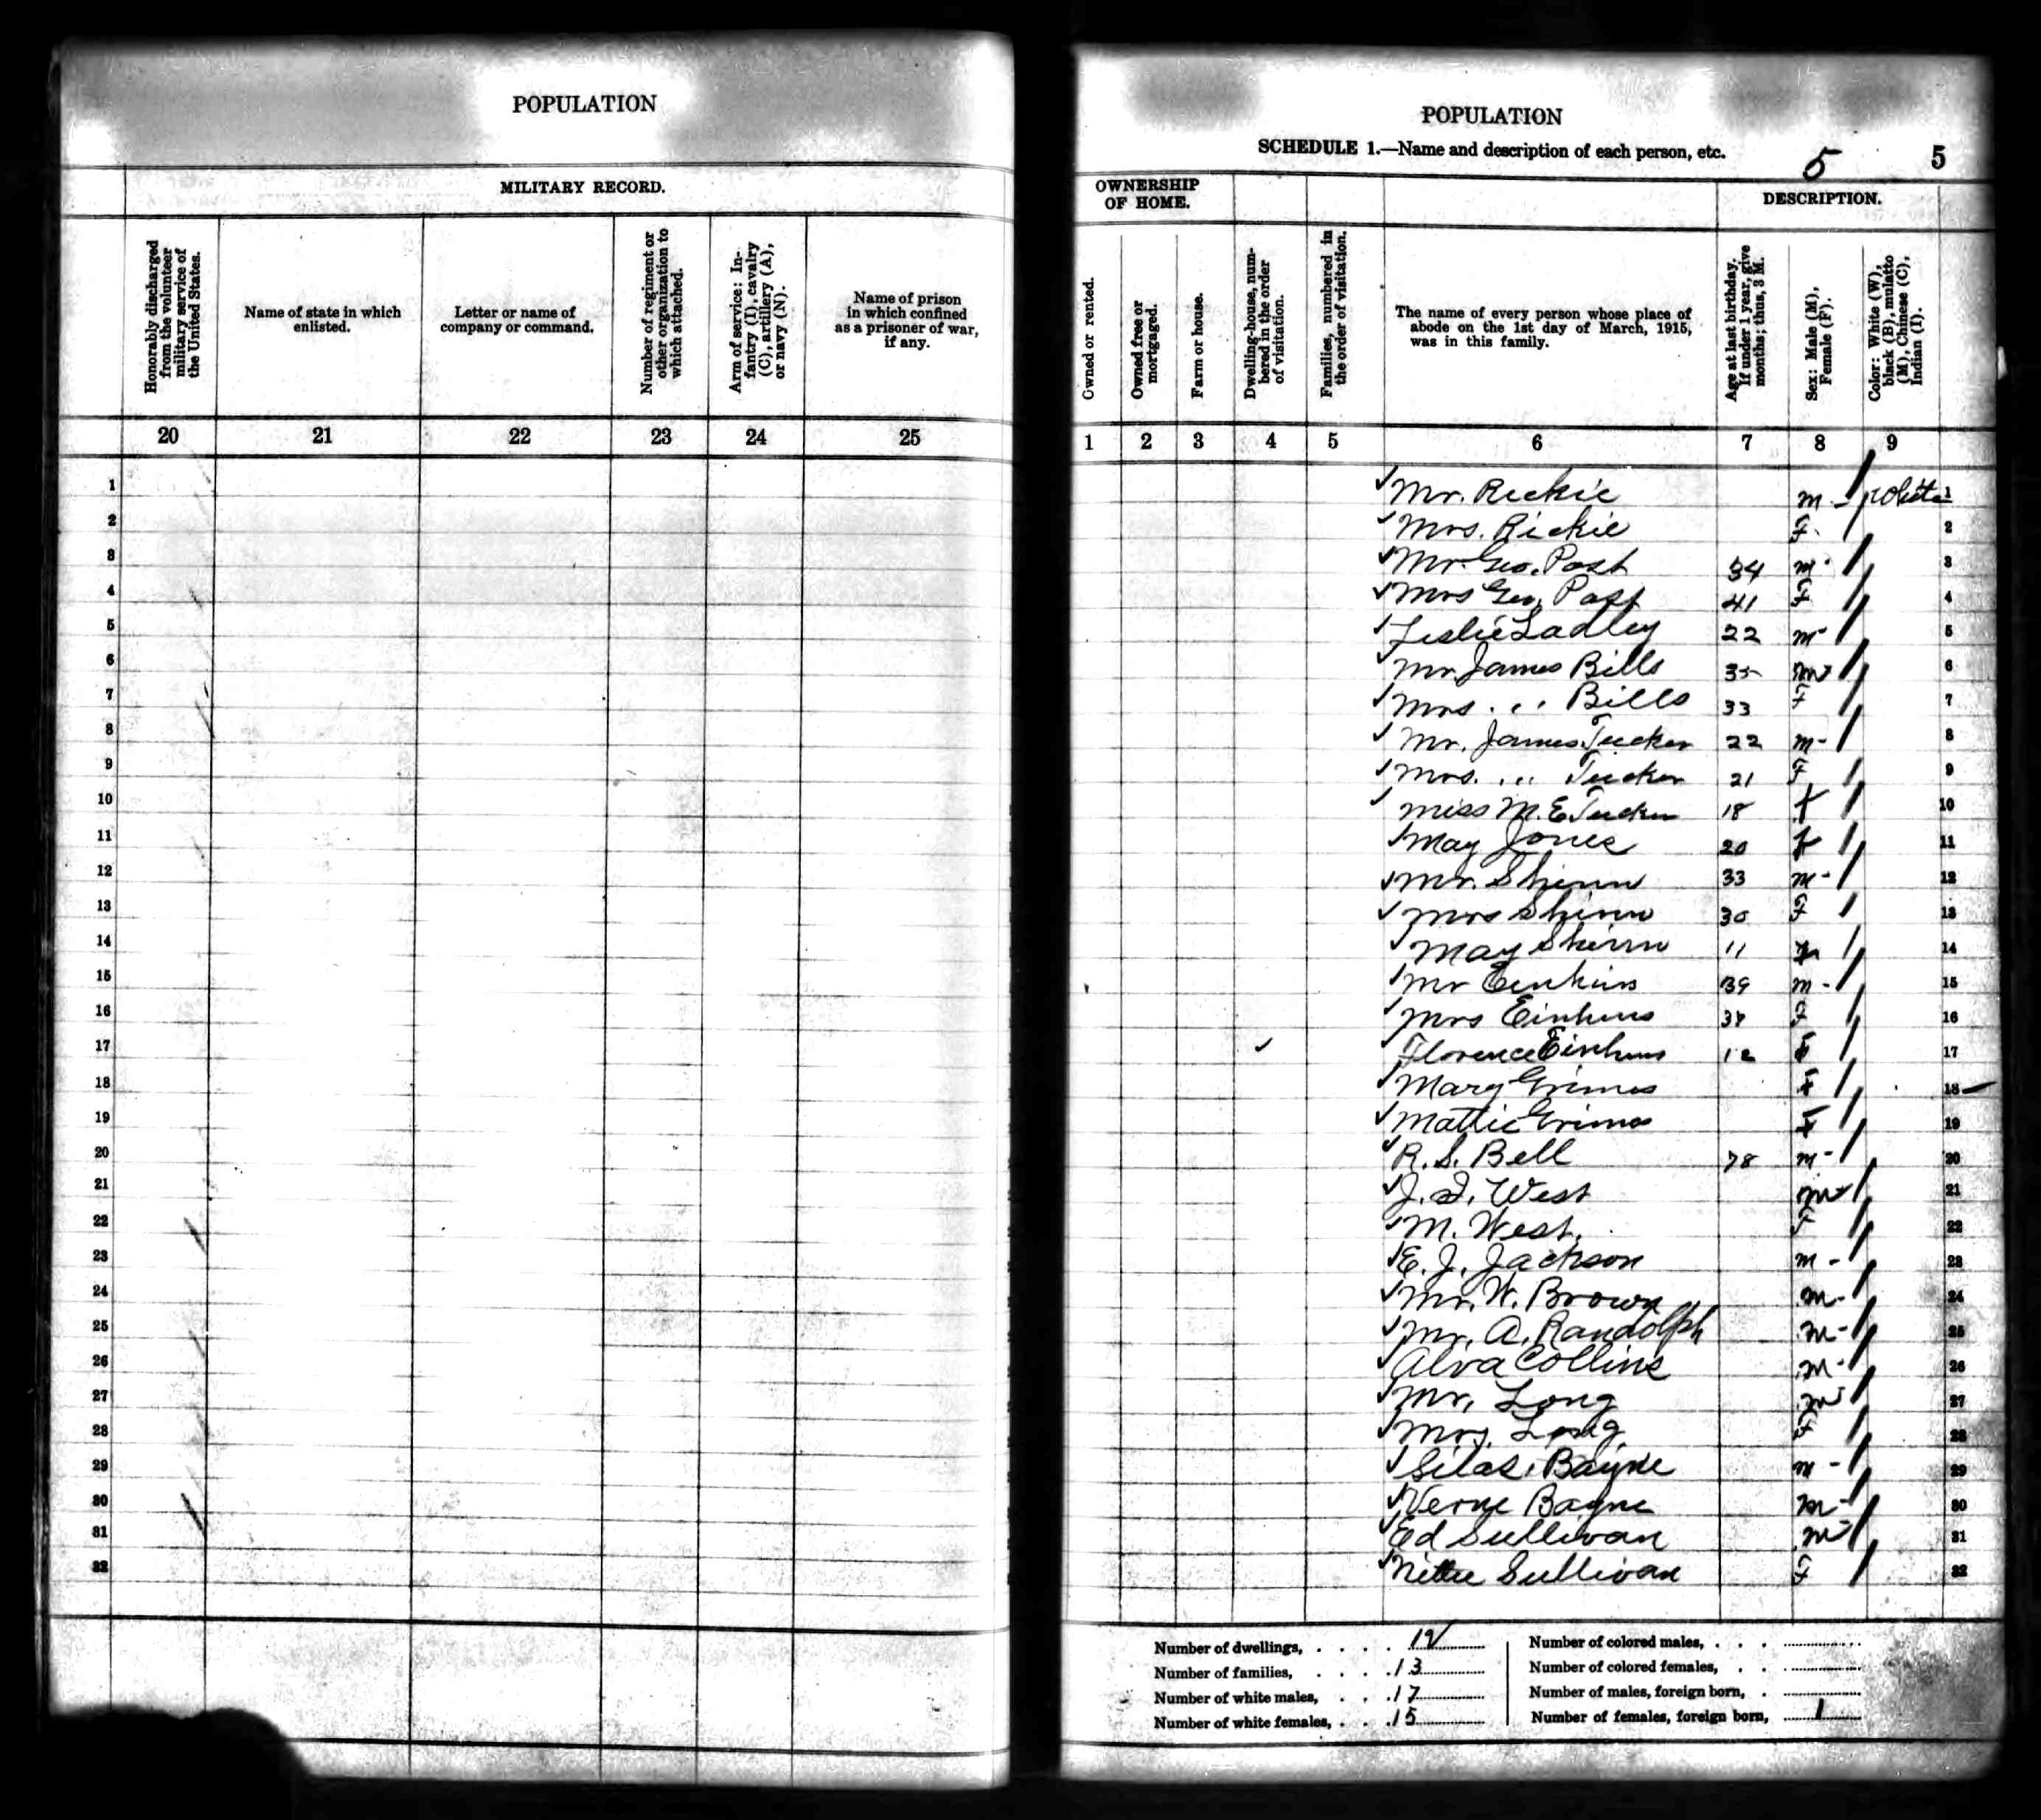 POPULATION
MILITARY RECORD.
Honorably discharged from the volunteer military service of the United States.
Name of state in which enlisted.
Letter or name of company or command.
Number of regiment or other organization to which attached.
Arm of service: Infantry (I), cavalry (C), artillery (A), or navy (N).
Name of prison in which confined as a prisoner of war, if any.
20 21 22 23 24 25
1
2
3
4
5
6
7
8
9
10
11
12
13
14
15
16
17
18
19
20
21
22
23
24
25
26
27
28
29
30
31
32
POPULATION
SCHEDULE 1.—Name and description of each person, etc. 5 5
OWNERSHIP OF HOME.
DESCRIPTION.
Owned or rented.
Owned free or mortgaged.
Farm or house.
Dwelling-house, numbered in the order of visitation.
Families, numbered in the order of visitation.
The name of every person whose place of abode on the 1st day of March, 1915, was in this family.
Age at last birthday. If under 1 year, give months; thus, 3 M.
Sex: Male (M), Female (F).
Color: White (W), black (B), mulatto (M), Chinese (C), Indian (I).
1 2 3 4 5 6 7 8 9
Mr. Rickie m White 1
Mrs. Rickie F 2
Mr. Geo. Post 34 m 3
Mrs Geo. Post 41 F 4
Leslie Ladley 22 m 5
Mr. James Bills 35 m 6
Mrs. " Bills 33 F 7
Mr. James Tucker 22 m 8
Mrs. " Tucker 21 F 9
Miss M. E. Tucker 18 f 10
May Jones 20 f 11
Mr. Shinn 33 m 12
Mrs Shinn 30 F 13
May Shinn 11 f 14
Mr 39 m 15
Mrs F 16
Florence 12 F 17
Mary Grimes F 18
Mattie Grimes F 19
R. S. Bell 78 m 20
West m 21
M. West. F 22
E. J. Jackson m 23
Mr. W. Brown m 24
Mr. A. Randolph m 25
Alva Collins m 26
Mr. Long m 27
Mrs. Long F 28
Silas Bayne m 29
Verne Bayne m 30
Ed Sullivan m 31
Nettie Sullivan F 32
Number of dwellings, . . . . 12
Number of families, . . . . 13
Number of white males, . . . 17
Number of white females, . . . 15
Number of colored males, . . .
Number of colored females, . .
Number of males, foreign born, .
Number of females, foreign born, 1